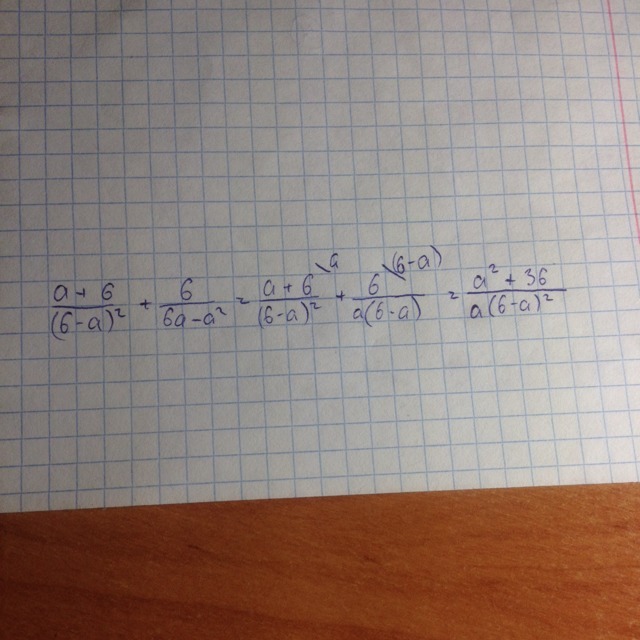 (a + 6)/(6-a)² + 6/(6a-a²) = (a + 6)\a/(6-a)² + 6\(6-a)/a(6-a) = (a² + 36)/a(6-a)²